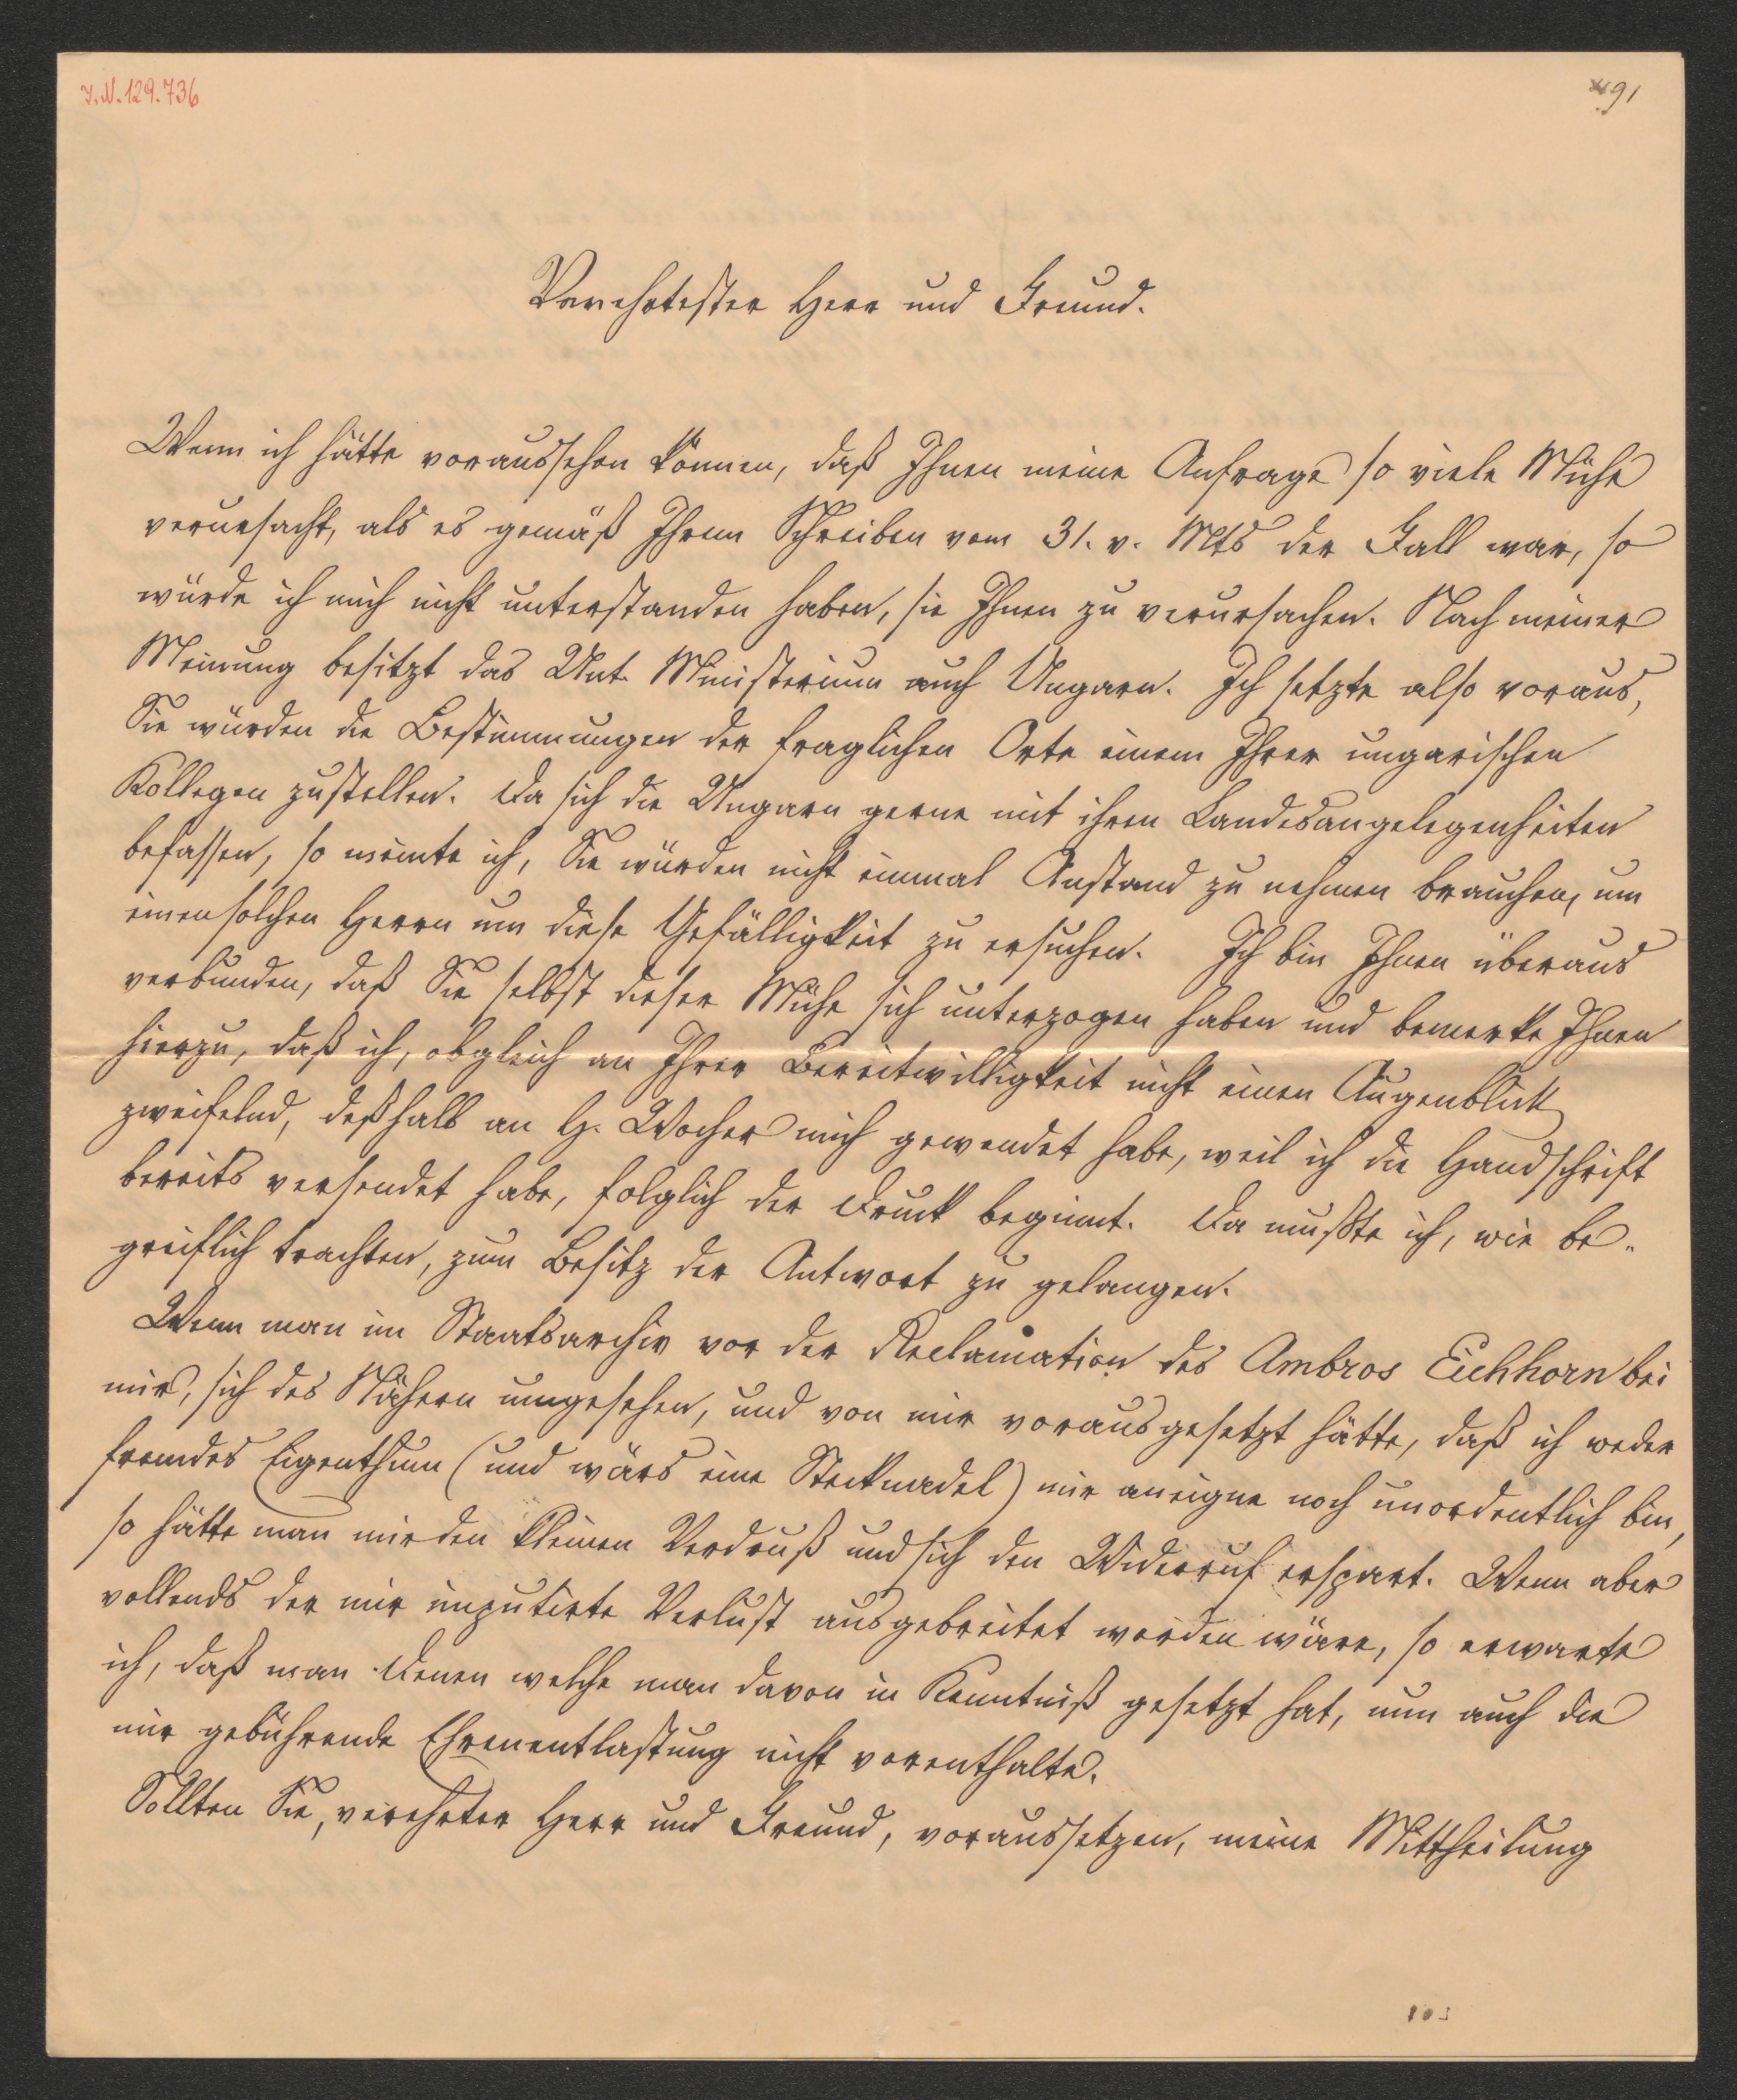 I.N. 129.736
91
Verehrtester Herr und Freund.
Wenn ich hätte voraussehen können, daß Ihnen meine Anfrage so viele Mühe
verursacht, als es gemäß Ihrem Schreiben vom 31. v. Mts der Fall war, so
würde ich mich nicht unterstanden haben, sie Ihnen zu verursachen. Nach meiner
Meinung besitzt das Unt. Ministerium auch Ungarn. Ich setzte also voraus,
Sie würden die Bestimmungen der fraglichen Orte einem Ihrer ungarischen
Kollegen zustellen. Da sich die Ungarn gerne mit ihren Landesangelegenheiten
befassen, so meinte ich, Sie würden nicht einmal Anstand zu nehmen brauchen, um
einen solchen Herrn um diese Gefälligkeit zu ersuchen. Ich bin Ihnen überaus
verbunden, daß Sie selbst dieser Mühe sich unterzogen haben und bemerke Ihnen
hierzu, daß ich, obgleich an Ihrer Bereitwilligkeit nicht einen Augenblick
zweifelnd, deßhalb an H. Wocher mich gewendet habe, weil ich die Handschrift
bereits versendet habe, folglich der Druck beginnt. Da mußte ich, wie be-
greiflich trachten, zum Besitz der Antwort zu gelangen.
Wenn man im Staatsarchiv vor der Reclamation des Ambros Eichhorn bei
mir, sich des Nähern umgesehen, und von mir vorausgesetzt hätte, daß ich weder
fremdes Eigenthum (und wärs eine Stecknadel) mir aneigne noch unordentlich bin,
so hätte man mir den kleinen Verdruß und sich den Widerruf erspart. Wenn aber
vollends der mir imputirte Verlust ausgebreitet worden wäre, so erwarte
ich, daß man Denen welche man davon in Kenntniß gesetzt hat, nun auch die
mir gebührende Ehrenentlastung nicht vorenthalte.
Sollten Sie, verehrter Herr und Freund, voraussetzen, meine Mittheilung